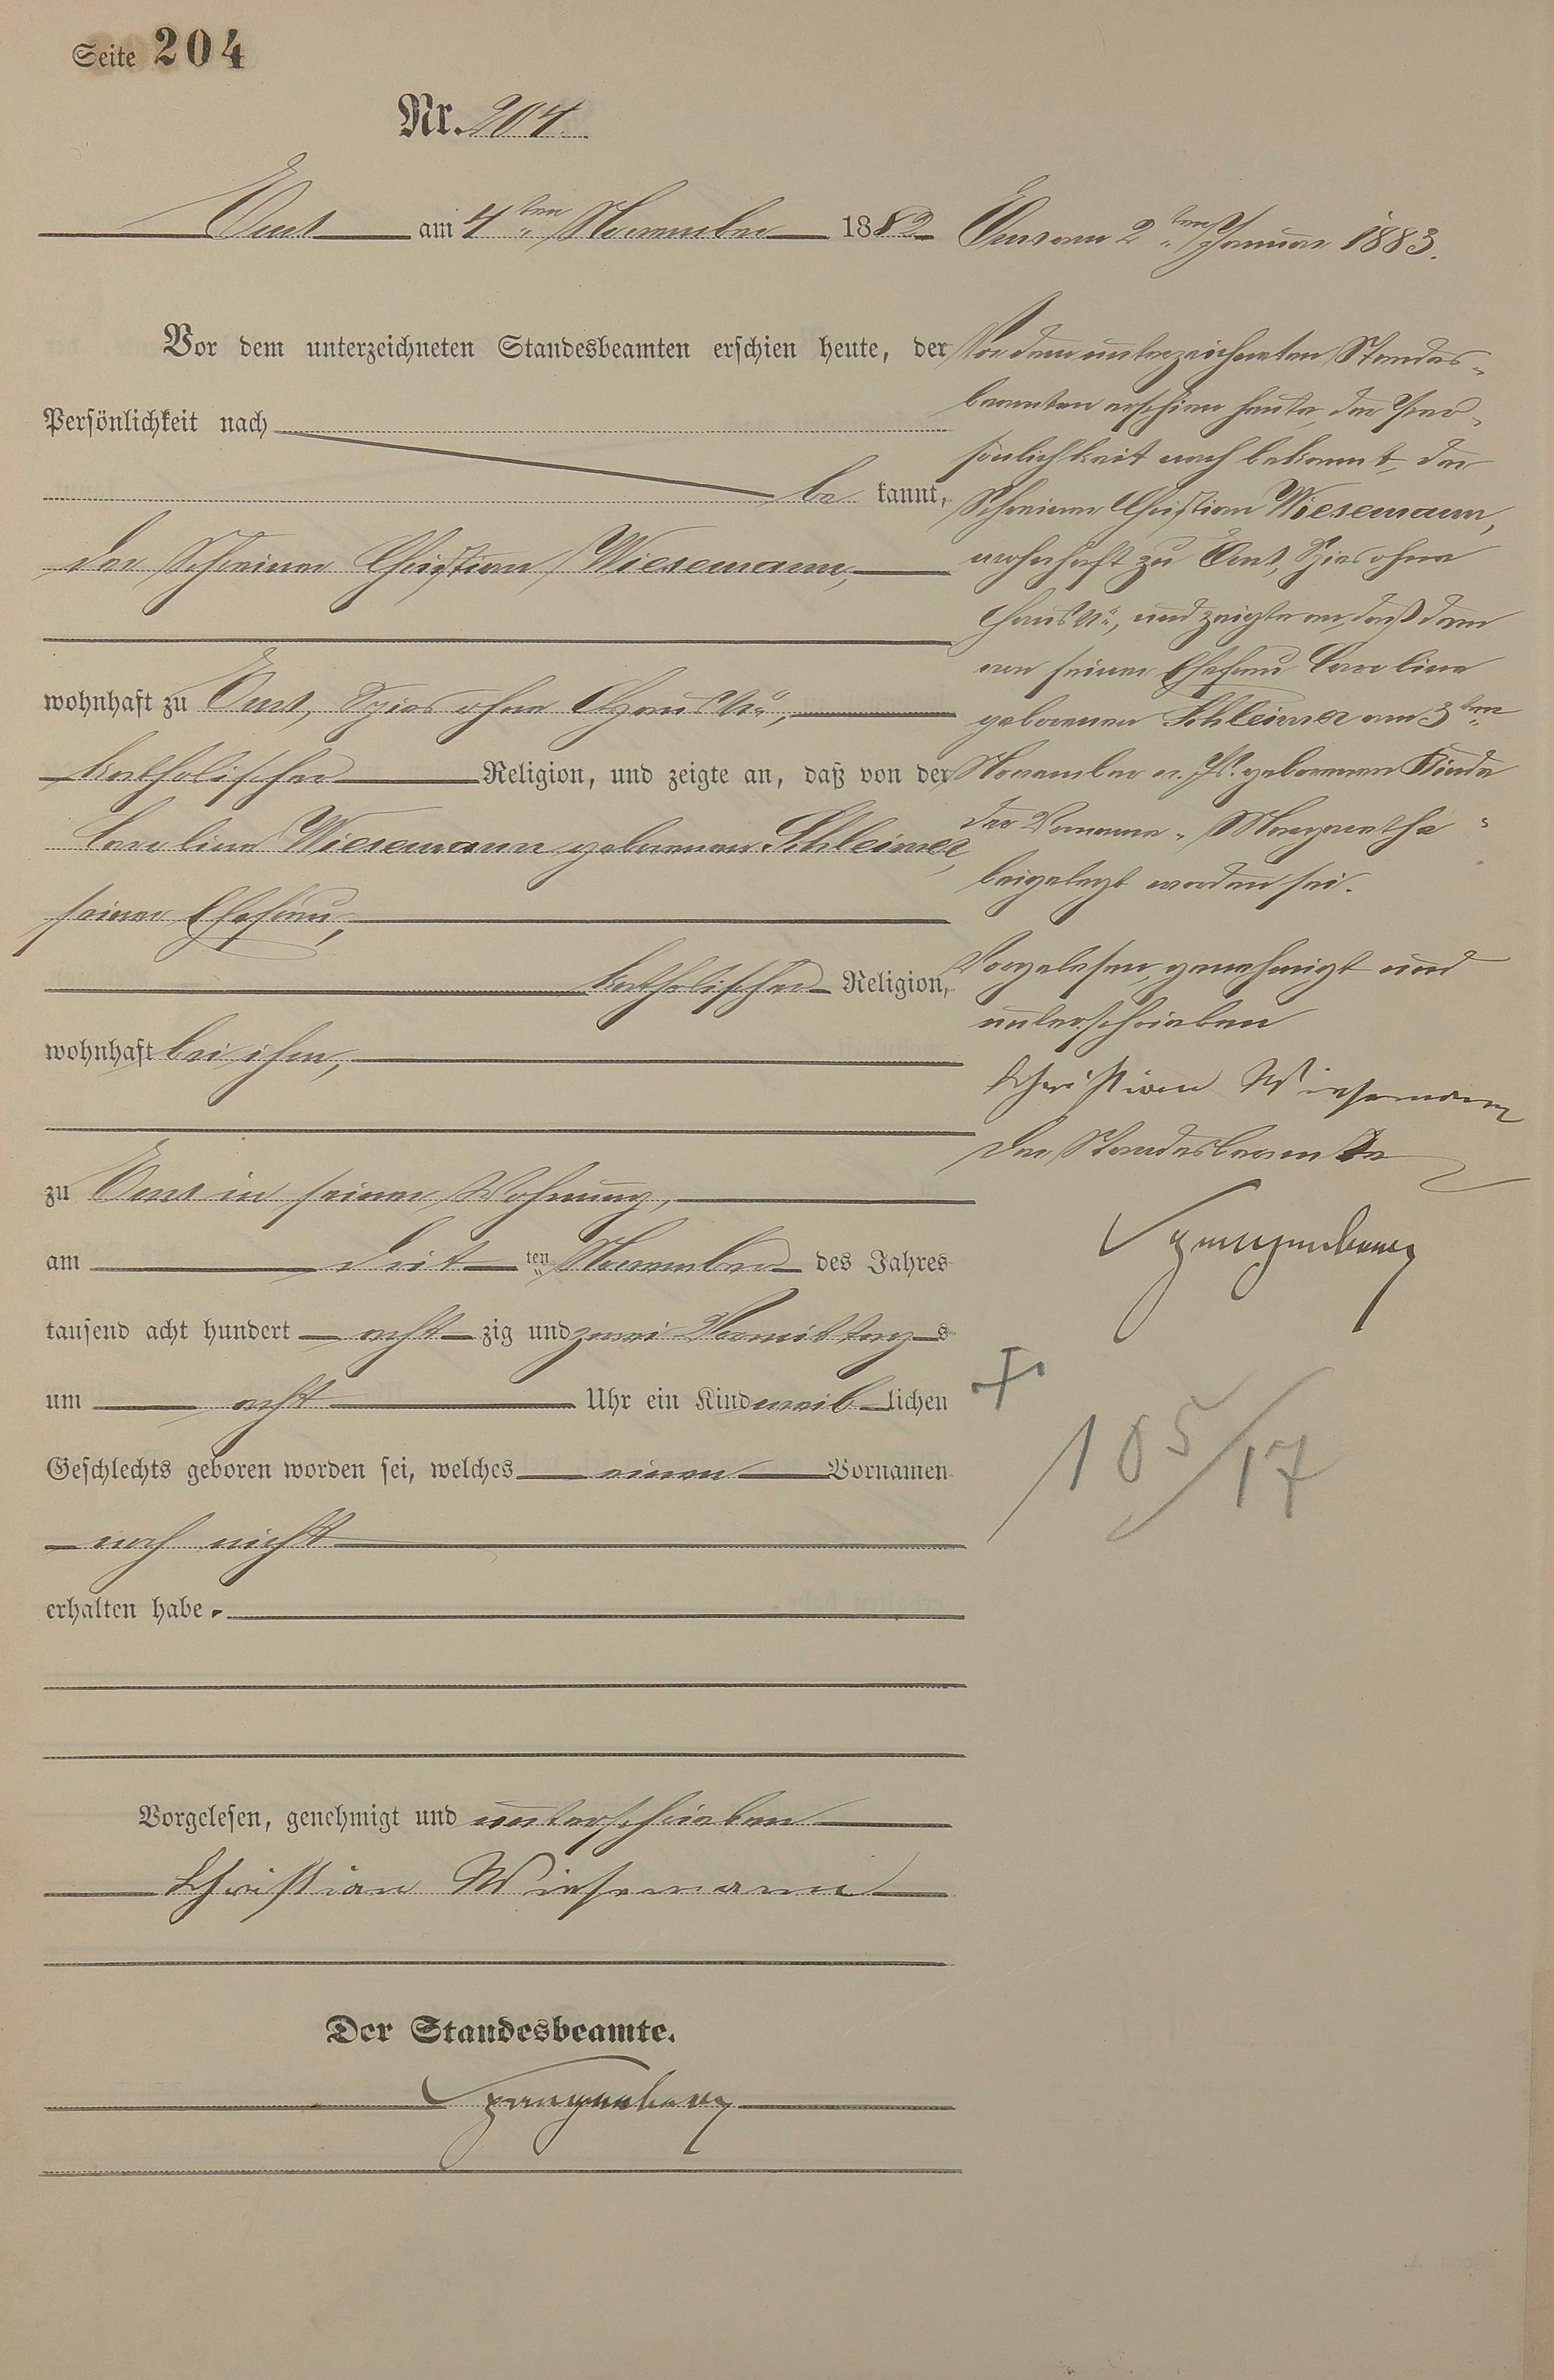 Seite 204
Nr. 204.
Ems am 4ten November 1882
Vor dem unterzeichneten Standesbeamten erschien heute, der
Persönlichkeit nach
be kannt,
der Schreiner Christian Wiesemann,
wohnhaft zu Ems, Spies ohne Haus No,
katholischer Religion, und zeigte an, daß von der
Caroline Wiesemann geborenen Schleimer,
seiner Ehefrau,
katholischer Religion,
wohnhaft bei ihm,
zu Ems in seiner Wohnung,
am drit ten November des Jahres
tausend acht hundert acht zig und zwei Vormittag s
um acht Uhr ein Kind weib lichen
Geschlechts geboren worden sei, welches einen Vornamen
noch nicht
erhalten habe.
Vorgelesen, genehmigt und unterschrieben
Christian Wiesemann
Der Standesbeamte.
Ems am 2ten Januar 1883.
Vor dem unterzeichneten Standes-
beamten erschien heute, der Per-
sönlichkeit nach bekannt, der
Schreiner Christian Wiesemann,
wohnhaft zu Ems, Spies ohne
Haus No, und zeigte an, daß dem
von seiner Ehefrau Caroline
geborenen Schleimer am 3ten
November v. Js. geborenen Kinde
der Vorname „Margaretha"
beigelegt worden sei.
Vorgelesen, genehmigt und
unterschrieben
Christian Wiesemann
Der Standesbeamte
+
105/17